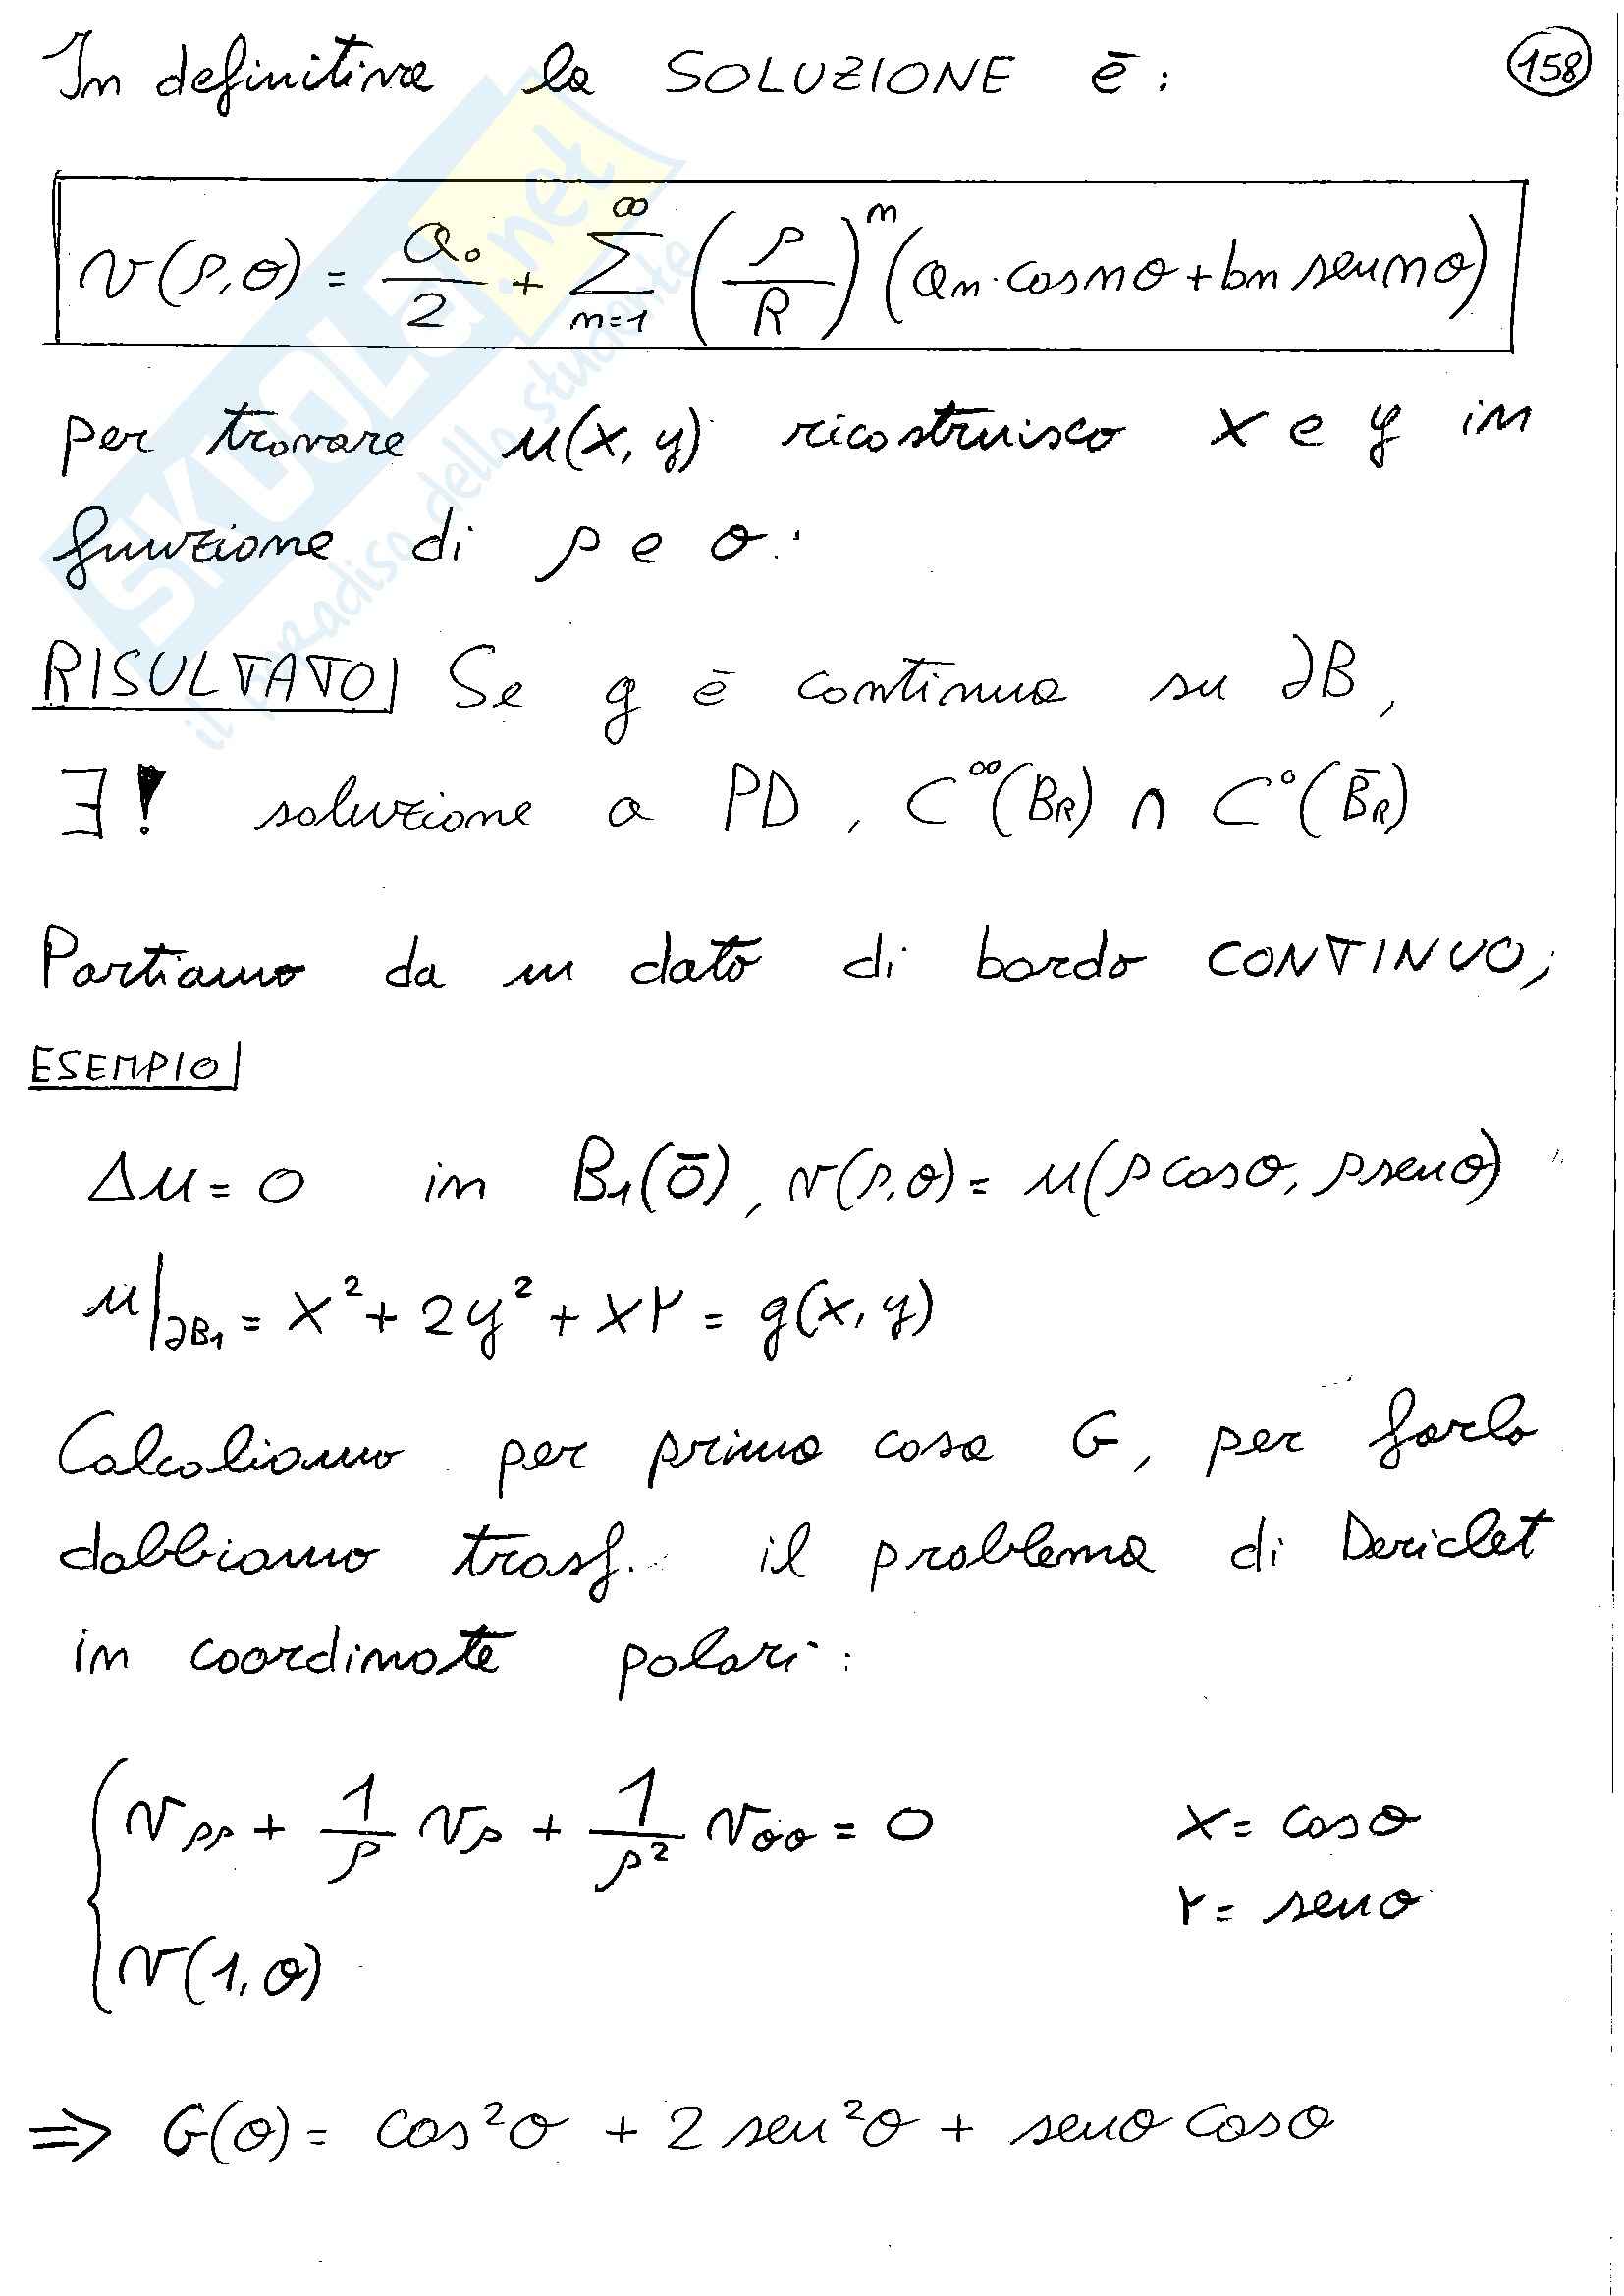 In definitiva la SOLUZIONE è:
158
v(ρ,θ) = a₀/2 + ∑_{n=1}^{∞} (ρ/R)^n (an·cosnθ + bn sennθ)
per trovare u(x,y) ricostruisco x e y in
funzione di ρ e θ.
RISULTATO| Se g è continua su ∂B,
∃! soluzione a PD, C^∞(B_R) ∩ C°(B̄_R)
Partiamo da un dato di bordo CONTINUO;
ESEMPIO|
Δu = 0 in B₁(ō), v(ρ,θ) = u(ρcosθ, ρsenθ)
u|_{∂B₁} = x² + 2y² + xy = g(x,y)
Calcoliamo per prima cosa G, per farlo
dobbiamo trasf. il problema di Dericlet
in coordinate polari:
{ v_ρρ + 1/ρ v_ρ + 1/ρ² v_θθ = 0 x = cosθ
v(1,θ) y = senθ
⇒ G(θ) = cos²θ + 2 sen²θ + senθ cosθ
SKUOLA.net
il paradiso dello studente